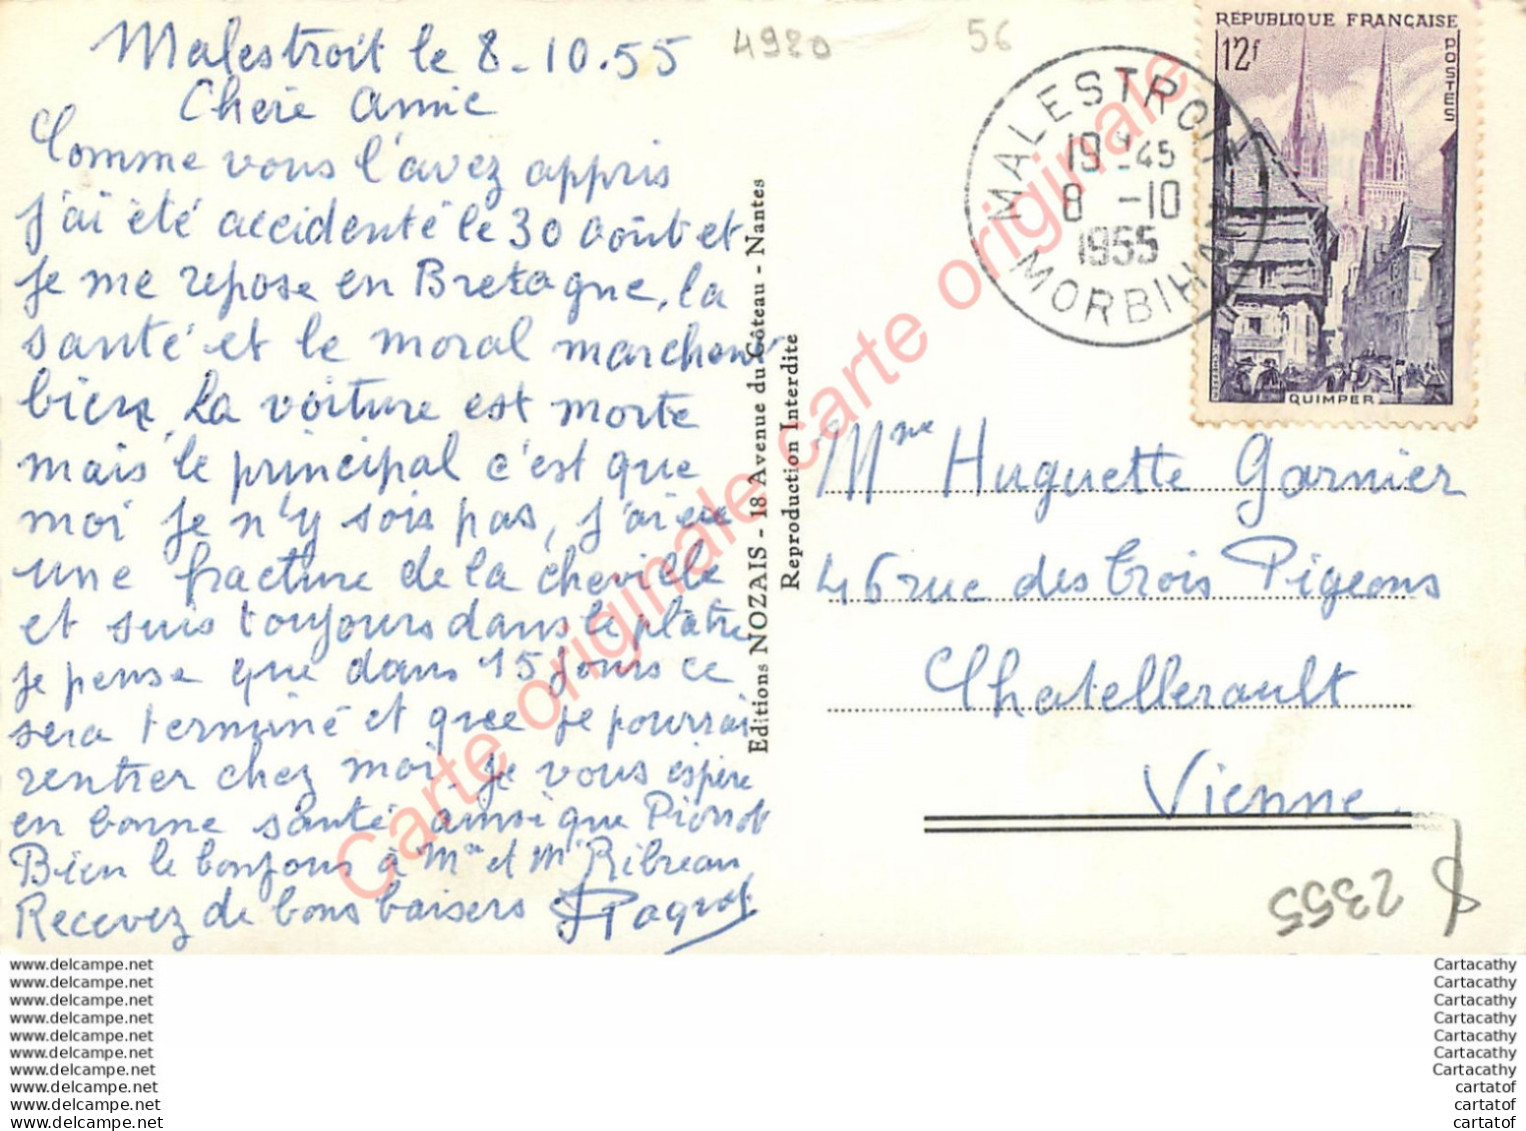 Malestroit le 8-10.55
Chère Amie
Comme vous l'avez appris
j'ai été accidenté le 30 Août et
je me repose en Bretagne, la
santé et le moral marchent
bien, la voiture est morte
mais le principal c'est que
moi je n'y sois pas, j'ai eu
une fracture de la cheville
et suis toujours dans le plâtre
je pense que dans 15 jours ce
sera terminé et que je pourrai
rentrer chez moi, je vous espère
en bonne santé ainsi que Pierrot
Bien le bonjour à Mme et Mr Ribreau
Recevez de bons baisers
4920
56
Editions NOZAIS - 18 Avenue du Côteau - Nantes
Reproduction Interdite
MALESTROIT
19 H 45
8 -10
1955
MORBIHAN
RÉPUBLIQUE FRANÇAISE
12f
POSTES
QUIMPER
Mme Huguette Garnier
46 rue des trois Pigeons
Chatellerault
Vienne
2355
Carte originale carte originale
www.delcampe.net
www.delcampe.net
www.delcampe.net
www.delcampe.net
www.delcampe.net
www.delcampe.net
www.delcampe.net
www.delcampe.net
www.delcampe.net
www.delcampe.net
Cartacathy
Cartacathy
Cartacathy
Cartacathy
Cartacathy
Cartacathy
Cartacathy
cartatof
cartatof
cartatof